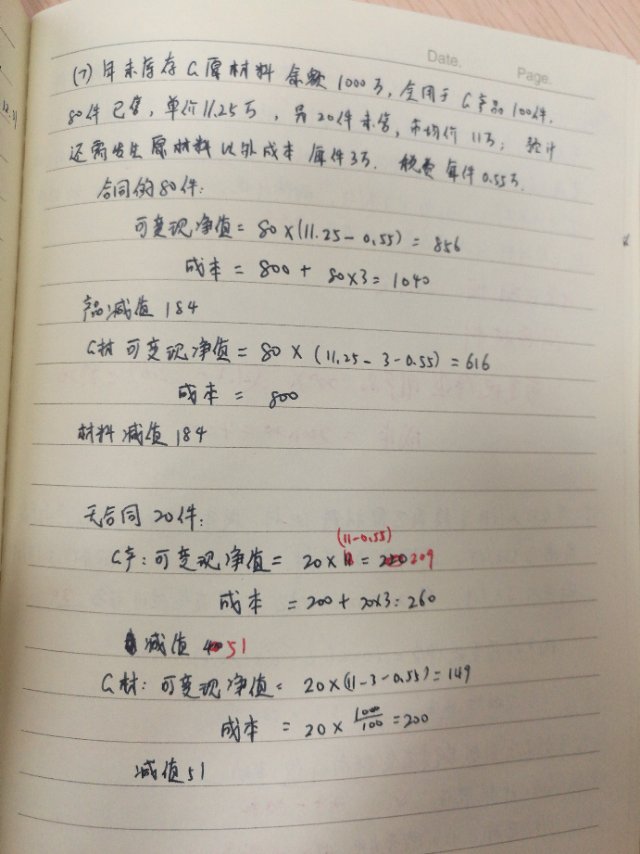 Date.
Page.
(7) 年末库存G原材料 余额1000万,全用于G产品100件.
80件已售,单价11.25万,另20件未售,市场价11万;预计
还需发生原材料以外成本 每件3万. 税费每件0.55万.
合同的80件:
可变现净值 = 80×(11.25-0.55) = 856
成本 = 800 + 80×3 = 1040
产品减值184
G材可变现净值 = 80 × (11.25-3-0.55) = 616
成本 = 800
材料减值184
无合同20件:
(11-0.55)
G产:可变现净值 = 20 × = 209
成本 = 200 + 20×3 = 260
减值 51
G材:可变现净值 = 20×(11-3-0.55) = 149
成本 = 20 × 1000/100 = 200
减值51